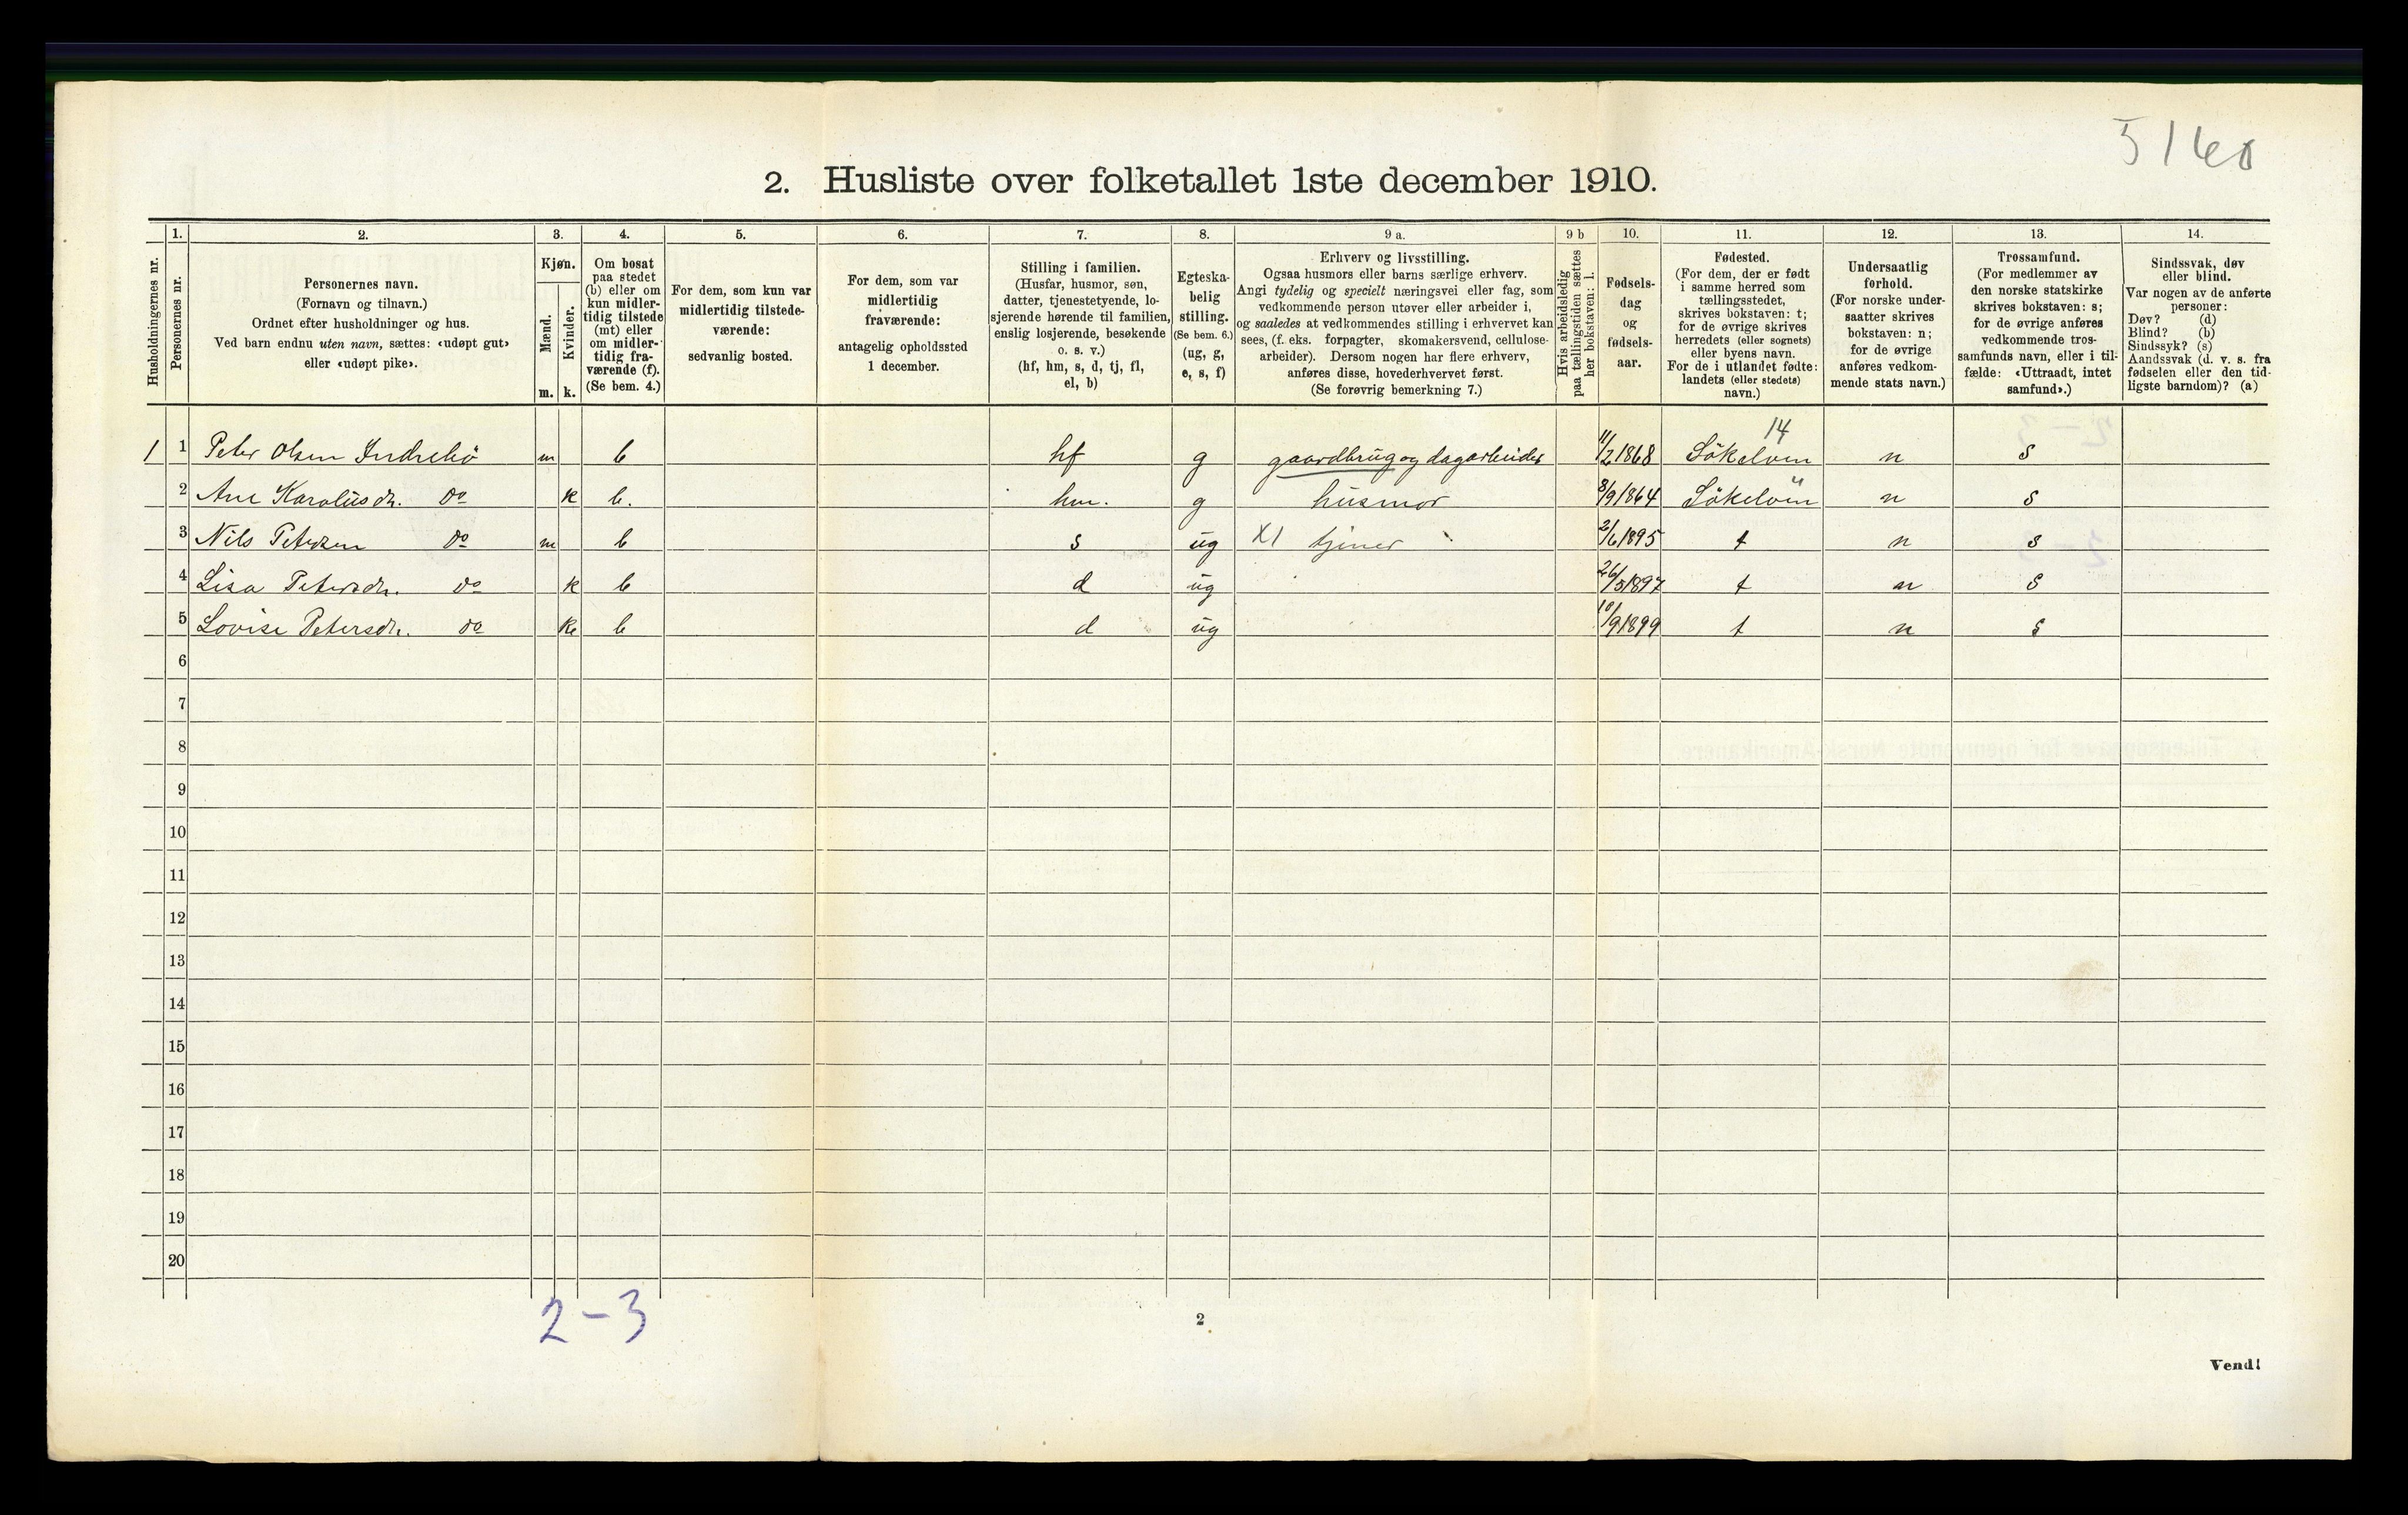 5160
2. Husliste over folketallet 1ste december 1910.
1. 2. 3. 4. 5. 6. 7. 8. 9 a. 9 b 10. 11. 12. 13. 14.
Husholdningernes nr.
Personernes nr.
Personernes navn.
(Fornavn og tilnavn.)
Ordnet efter husholdninger og hus.
Ved barn endnu uten navn, sættes: «udøpt gut»
eller «udøpt pike».
Kjøn.
Mænd.
Kvinder.
m. k.
Om bosat
paa stedet
(b) eller om
kun midler-
tidig tilstede
(mt) eller
om midler-
tidig fra-
værende (f).
(Se bem. 4.)
For dem, som kun var
midlertidig tilstede-
værende:
sedvanlig bosted.
For dem, som var
midlertidig
fraværende:
antagelig opholdssted
1 december.
Stilling i familien.
(Husfar, husmor, søn,
datter, tjenestetyende, lo-
sjerende hørende til familien,
enslig losjerende, besøkende
o. s. v.)
(hf, hm, s, d, tj, fl,
el, b)
Egteska-
belig
stilling.
(Se bem. 6.)
(ug, g,
e, s, f)
Erhverv og livsstilling.
Ogsaa husmors eller barns særlige erhverv.
Angi tydelig og specielt næringsvei eller fag, som
vedkommende person utøver eller arbeider i,
og saaledes at vedkommendes stilling i erhvervet kan
sees, (f. eks. forpagter, skomakersvend, cellulose-
arbeider). Dersom nogen har flere erhverv,
anføres disse, hovederhvervet først.
(Se forøvrig bemerkning 7.)
Hvis arbeidsledig
paa tællingstiden sættes
her bokstaven: l.
Fødsels-
dag
og
fødsels-
aar.
Fødested.
(For dem, der er født
i samme herred som
tællingsstedet,
skrives bokstaven: t;
for de øvrige skrives
herredets (eller sognets)
eller byens navn.
For de i utlandet fødte:
landets (eller stedets)
navn.)
Undersaatlig
forhold.
(For norske under-
saatter skrives
bokstaven: n;
for de øvrige
anføres vedkom-
mende stats navn.)
Trossamfund.
(For medlemmer av
den norske statskirke
skrives bokstaven: s;
for de øvrige anføres
vedkommende tros-
samfunds navn, eller i til-
fælde: «Uttraadt, intet
samfund».)
Sindssvak, døv
eller blind.
Var nogen av de anførte
personer:
Døv? (d)
Blind? (b)
Sindssyk? (s)
Aandssvak (d. v. s. fra
fødselen eller den tid-
ligste barndom)? (a)
14
1 1 Peter Olsen Indrebö m b hf g gaardbrug og dagarbeider 11/2 1868 Sökelven n s
2 Ane Karolusdr. do k b. hm. g husmor 8/9 1864 Sökelven " n s
3 Nils Petersen do m b s ug X1 tjener 2/6 1895 t n s
4 Lisa Petersdr. do k b d ug 26/5 1897 t n s
5 Lovise Petersdr. do k b d ug 10/9 1899 t n s
6
7
8
9
10
11
12
13
14
15
16
17
18
19
20
2-3
2
Vend!